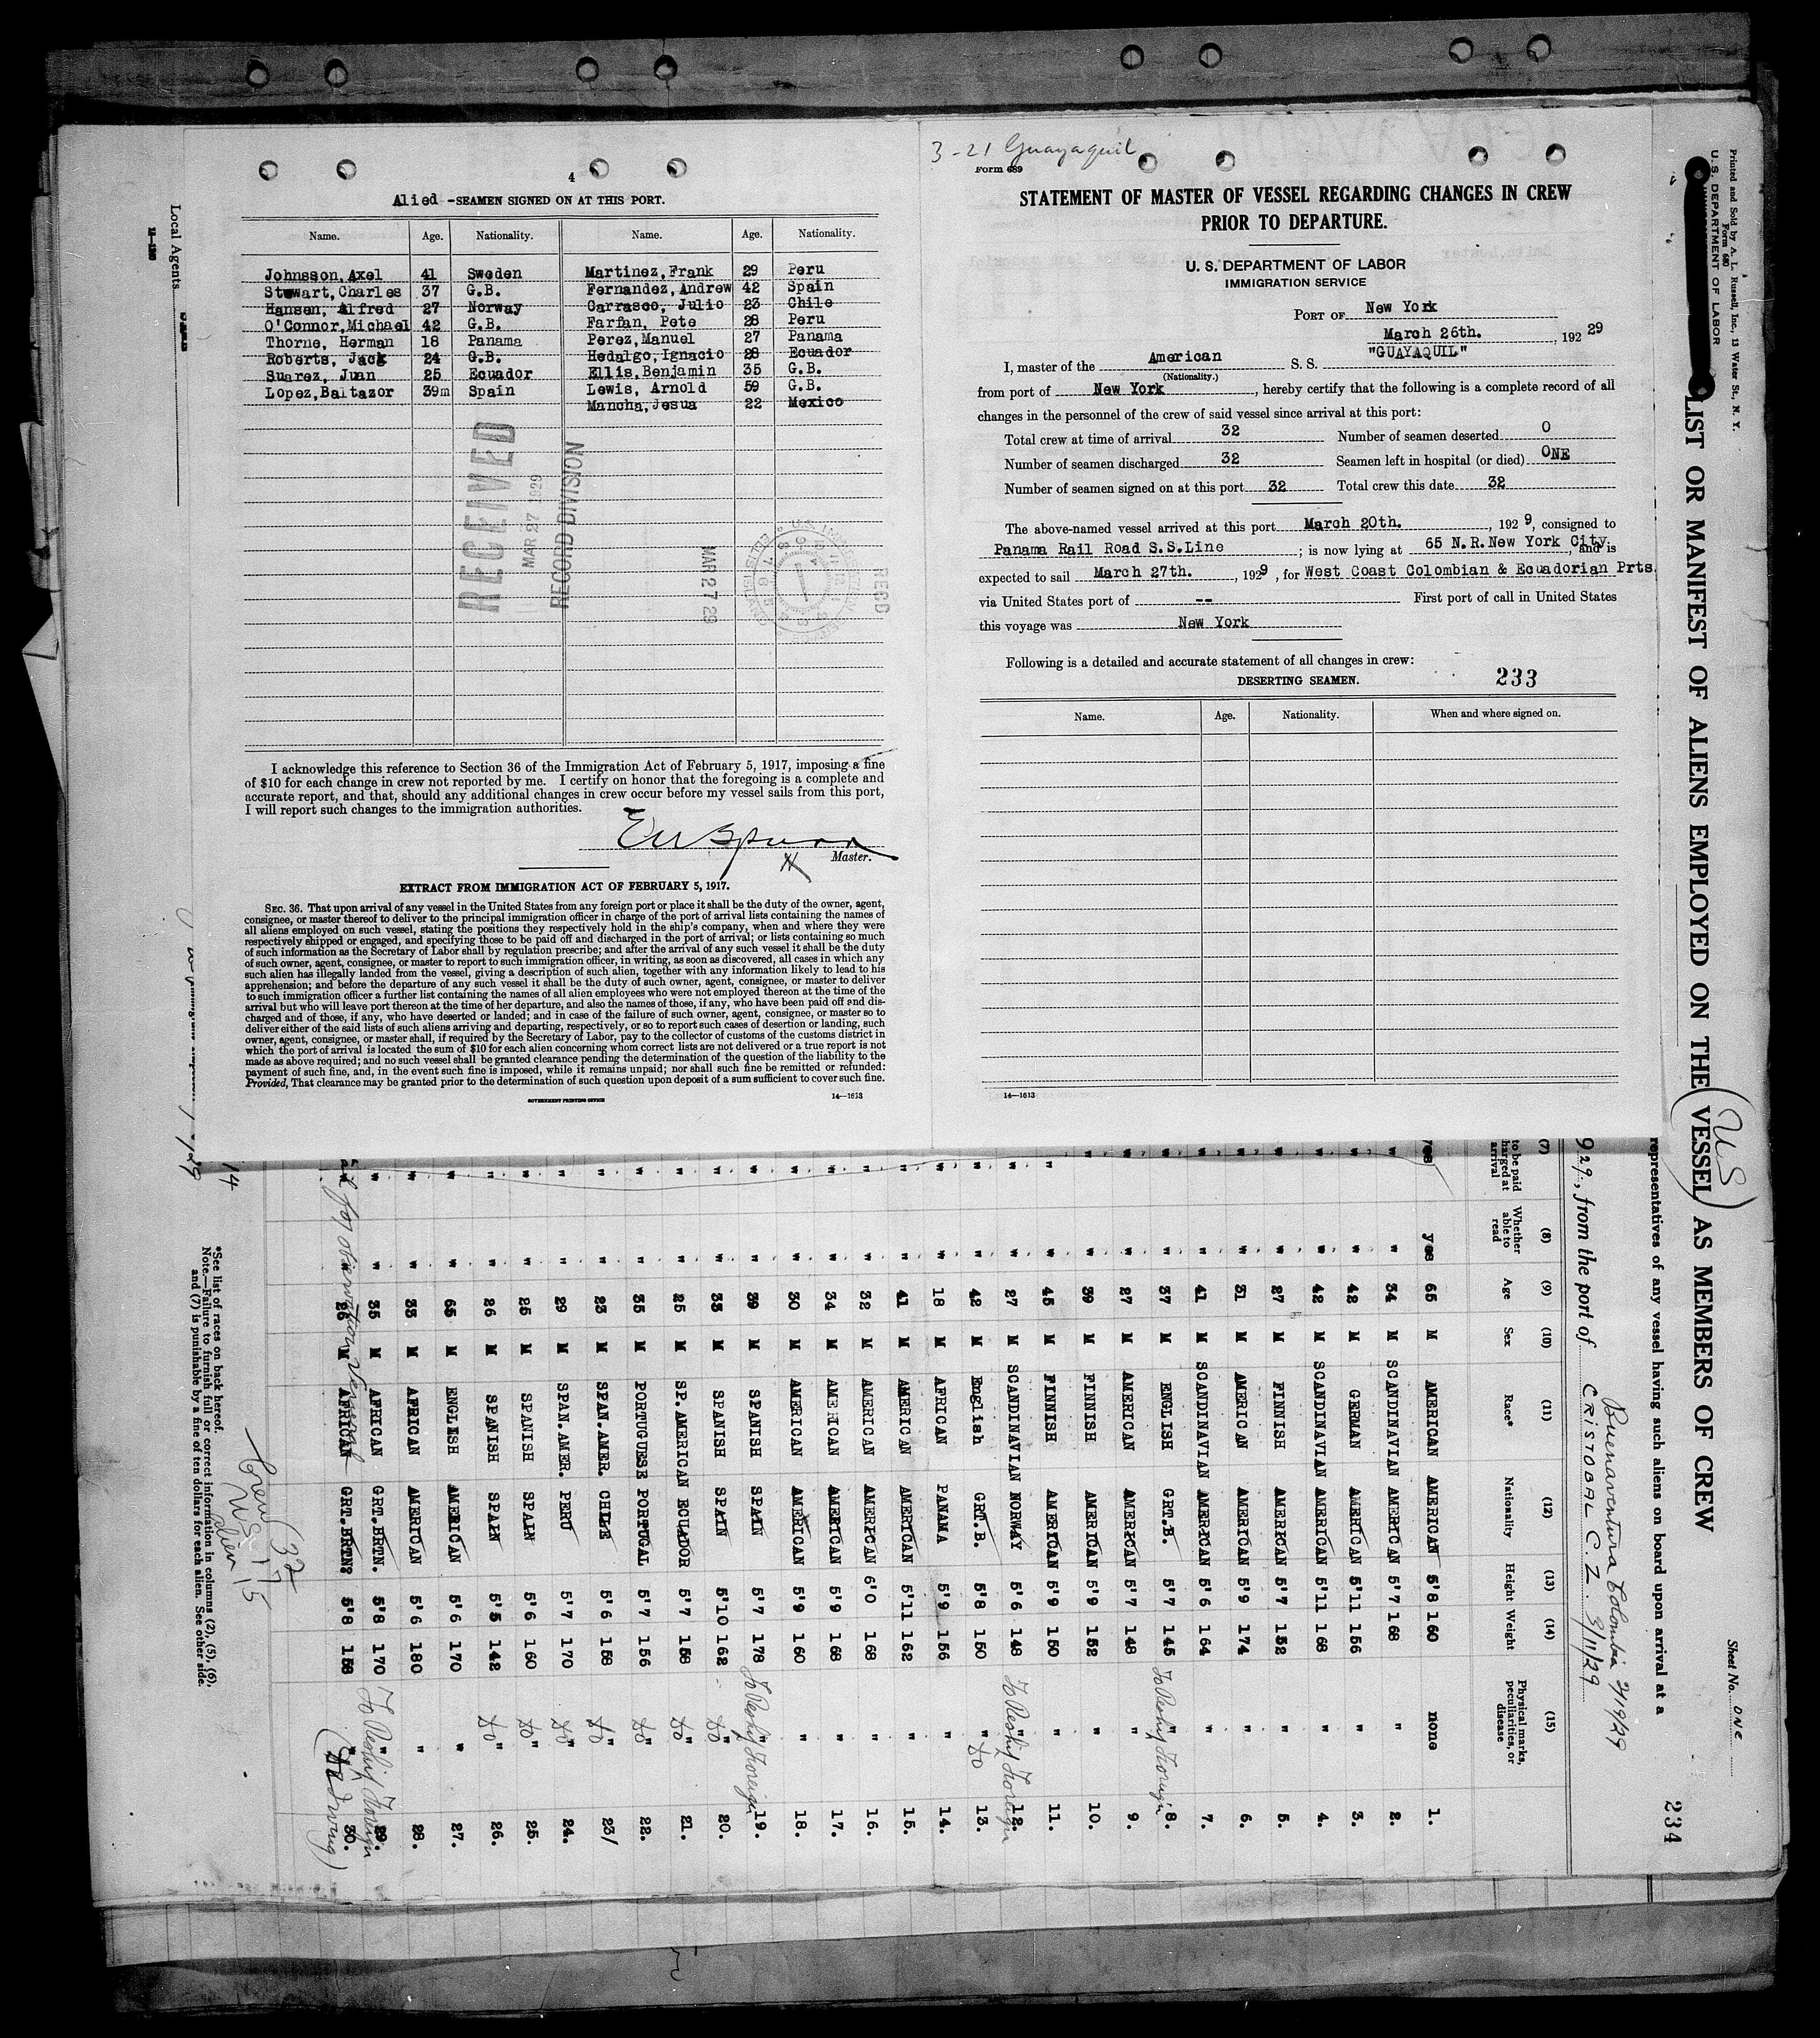 4
Alied -SEAMEN SIGNED ON AT THIS PORT.
Name. Age. Nationality. Name. Age. Nationality.
Johnsson, Axel 41 Sweden Martinez, Frank 29 Peru
Stewart, Charles 37 G.B. Fernandez, Andrew 42 Spain
Hansen, Alfred 27 Norway Carrasco, Julio 23 Chile
O'Connor, Michael 42 G.B. Farfan, Pete 28 Peru
Thorne, Herman 18 Panama Perez, Manuel 27 Panama
Roberts, Jack 24 G.B. Hedalgo, Ignacio 28 Ecuador
Suarez, Juan 25 Ecuador Ellis, Benjamin 35 G.B.
Lopez, Baltazor 39m Spain Lewis, Arnold 59 G.B.
Mancha, Jesua 22 Mexico
RECEIVED
MAR 27 1929
RECORD DIVISION
MAR 27 29
RECD
I acknowledge this reference to Section 36 of the Immigration Act of February 5, 1917, imposing a fine
of $10 for each change in crew not reported by me. I certify on honor that the foregoing is a complete and
accurate report, and that, should any additional changes in crew occur before my vessel sails from this port,
I will report such changes to the immigration authorities.
Master.
EXTRACT FROM IMMIGRATION ACT OF FEBRUARY 5, 1917.
SEC. 36. That upon arrival of any vessel in the United States from any foreign port or place it shall be the duty of the owner, agent,
consignee, or master thereof to deliver to the principal immigration officer in charge of the port of arrival lists containing the names of
all aliens employed on such vessel, stating the positions they respectively hold in the ship's company, when and where they were
respectively shipped or engaged, and specifying those to be paid off and discharged in the port of arrival; or lists containing so much
of such information as the Secretary of Labor shall by regulation prescribe; and after the arrival of any such vessel it shall be the duty
of such owner, agent, consignee, or master to report to such immigration officer, in writing, as soon as discovered, all cases in which any
such alien has illegally landed from the vessel, giving a description of such alien, together with any information likely to lead to his
apprehension; and before the departure of any such vessel it shall be the duty of such owner, agent, consignee, or master to deliver
to such immigration officer a further list containing the names of all alien employees who were not employed thereon at the time of the
arrival but who will leave port thereon at the time of her departure, and also the names of those, if any, who have been paid off and dis-
charged and of those, if any, who have deserted or landed; and in case of the failure of such owner, agent, consignee, or master so to
deliver either of the said lists of such aliens arriving and departing, respectively, or so to report such cases of desertion or landing, such
owner, agent, consignee, or master shall, if required by the Secretary of Labor, pay to the collector of customs of the customs district in
which the port of arrival is located the sum of $10 for each alien concerning whom correct lists are not delivered or a true report is not
made as above required; and no such vessel shall be granted clearance pending the determination of the question of the liability to the
payment of such fine, and, in the event such fine is imposed, while it remains unpaid; nor shall such fine be remitted or refunded:
Provided, That clearance may be granted prior to the determination of such question upon deposit of a sum sufficient to cover such fine.
GOVERNMENT PRINTING OFFICE 14—1613
3-21 Guayaquil
Form 689
STATEMENT OF MASTER OF VESSEL REGARDING CHANGES IN CREW
PRIOR TO DEPARTURE.
U. S. DEPARTMENT OF LABOR
IMMIGRATION SERVICE
PORT OF New York
March 26th. , 192 29
I, master of the American S. S. "GUAYAQUIL"
(Nationality.)
from port of New York, hereby certify that the following is a complete record of all
changes in the personnel of the crew of said vessel since arrival at this port:
Total crew at time of arrival 32 Number of seamen deserted 0
Number of seamen discharged 32 Seamen left in hospital (or died) ONE
Number of seamen signed on at this port 32 Total crew this date 32
The above-named vessel arrived at this port March 20th. , 192 9, consigned to
Panama Rail Road S.S.Line ; is now lying at 65 N.R.New York City. , and is
expected to sail March 27th. , 1929 , for West Coast Colombian & Ecuadorian Prts.
via United States port of -- First port of call in United States
this voyage was New York
Following is a detailed and accurate statement of all changes in crew:
DESERTING SEAMEN. 233
Name. Age. Nationality. When and where signed on.
14—1613
Local Agents
Printed and Sold by A. L. Russell, Inc., 13 Water St., N. Y.
Form 680
U. S. DEPARTMENT OF LABOR
LIST OR MANIFEST OF ALIENS EMPLOYED ON THE (VESSEL) AS MEMBERS OF CREW
US
Sheet No. ONE
234
representatives of any vessel having such aliens on board upon arrival at a
Buenaventura Colombia 3/9/29
929, from the port of CRISTOBAL C.Z. 3/11/29
(7) (8) (9) (10) (11) (12) (13) (14) (15)
to be paid
charged at
arrival
Whether able to read Age Sex Race* Nationality Height Weight Physical marks, peculiarities, or disease
yes yes 65 M AMERICAN AMERICAN 5'8 160 none 1.
" " 34 M SCANDINAVIAN AMERICAN 5'7 168 " 2.
" " 42 M GERMAN AMERICAN 5'11 156 " 3.
" " 42 M SCANDINAVIAN AMERICAN 5'11 168 " 4.
" " 27 M FINNISH AMERICAN 5'7 152 " 5.
" " 31 M AMERICAN AMERICAN 5'9 174 " 6.
" " 41 M SCANDINAVIAN AMERICAN 5'6 164 " 7.
" " 37 M ENGLISH GRT.B. 5'7 145 " To Reship Foreign 8.
" " 27 M AMERICAN AMERICAN 5'7 148 " 9.
" " 39 M FINNISH AMERICAN 5'9 152 " 10.
" " 45 M FINNISH AMERICAN 5'9 150 " 11.
" " 27 M SCANDINAVIAN NORWAY 5'6 148 " To Reship Foreign 12.
" " 42 M English GRT.B. 5'8 150 " do 13.
" " 18 M AFRICAN PANAMA 5'9 156 " 14.
" " 41 M AMERICAN AMERICAN 5'11 162 " 15.
" " 32 M AMERICAN AMERICAN 6'0 168 " 16.
" " 34 M AMERICAN AMERICAN 5'9 168 " 17.
" " 30 M AMERICAN AMERICAN 5'9 160 " 18.
" " 39 M SPANISH SPAIN 5'7 178 " To Reship Foreign 19.
" " 33 M SPANISH SPAIN 5'10 162 " do 20.
" " 25 M SP. AMERICAN ECUADOR 5'7 158 " do 21.
" " 35 M PORTUGUESE PORTUGAL 5'7 156 " do 22.
" " 23 M SPAN. AMER. CHILE 5'6 158 " do 23/
" " 29 M SPAN. AMER. PERU 5'7 170 " do 24.
" " 25 M SPANISH SPAIN 5'6 160 " do 25.
" " 26 M SPANISH SPAIN 5'5 142 " do 26.
" " 65 M ENGLISH AMERICAN 5'6 170 " 27.
" " 33 M AFRICAN AMERICAN 5'6 180 " 28.
" " 35 M AFRICAN GRT.BRTN. 5'8 170 " To Reship Foreign 29.
" " 26 M AFRICAN GRT.BRTN? 5'8 158 " 30.
Crew 32
US 17
alien 15
*See list of races on back hereof.
Note.—Failure to furnish full or correct information in columns (2), (5), (6),
and (7) is punishable by a fine of ten dollars for each alien. See other side.
14